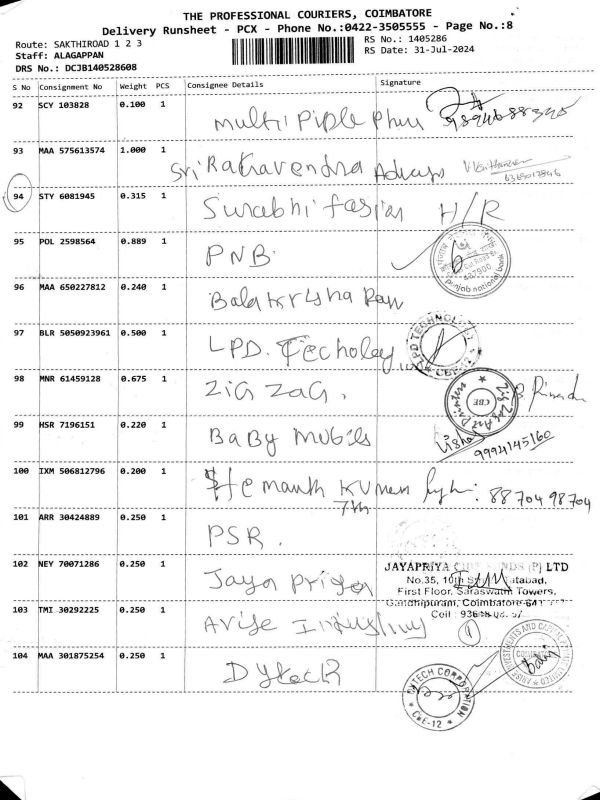 THE PROFESSIONAL COURIERS, COIMBATORE
Delivery Runsheet - PCX - Phone No.:0422-3505555 - Page No.:8
Route: SAKTHIROAD 1 2 3
Staff: ALAGAPPAN
DRS No.: DCJB140528608
RS No.: 1405286
RS Date: 31-Jul-2024
S No Consignment No Weight PCS Consignee Details Signature
92 SCY 103828 0.100 1
93 MAA 575613574 1.000 1 Sri Ragavendra
94 STY 6081945 0.315 1 Surabhi H/R
95 POL 2598564 0.889 1 PNB
punjab national bank
96 MAA 650227812 0.240 1 Balakrisha
97 BLR 5050923961 0.500 1 LPD. Techoloey
LPD TECHNOLOGY
98 MNR 61459128 0.675 1 ZIG ZAG.
CBE
99 HSR 7196151 0.220 1 BaBy Mobils 9994145160
100 IXM 506812796 0.200 1 Hemanth Kumar 88704 98704
101 ARR 30424889 0.250 1 PSR.
102 NEY 70071286 0.250 1 Jaya priya
JAYAPRIYA (P) LTD
No.35, 10th
First Floor, Saraswathi Towers,
Gandhipuram, Coimbatore-641
Cell :
103 TMI 30292225 0.250 1 Arise Industriy
104 MAA 301875254 0.250 1 Dytech
DYTECH CORPORATION
CBE-12